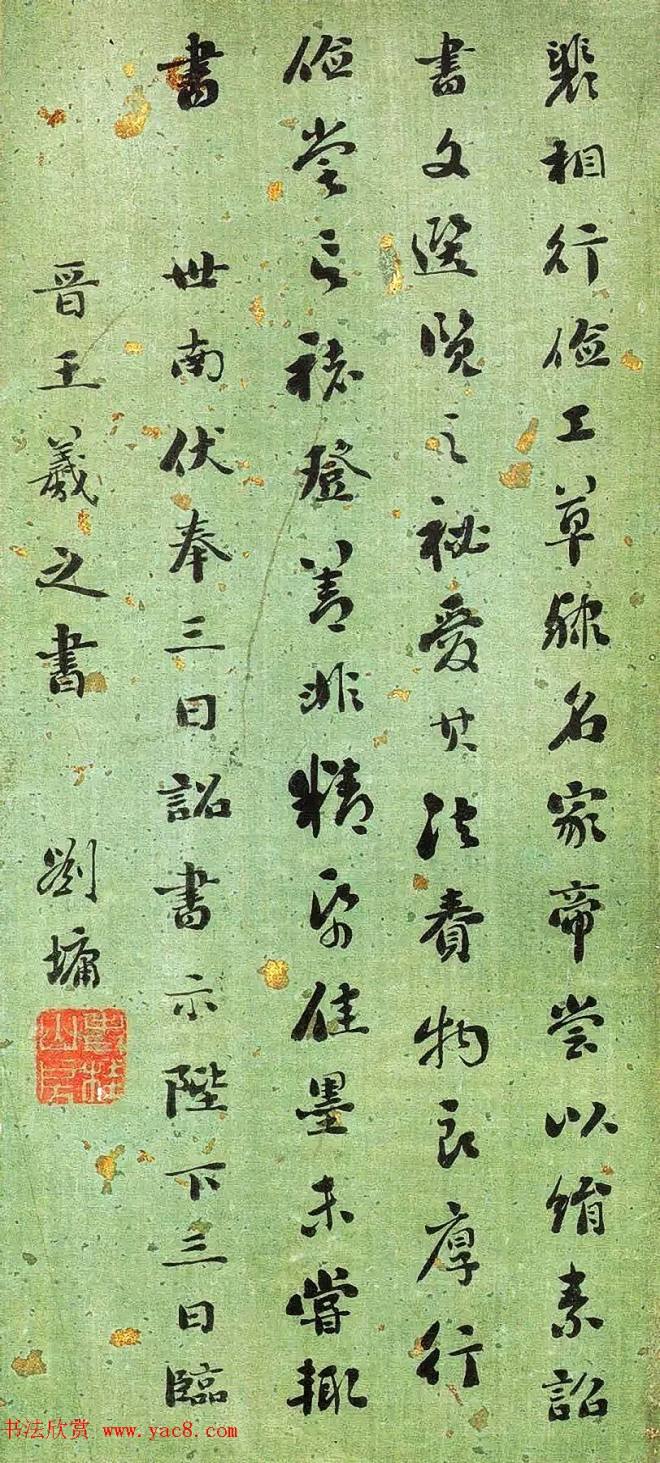 裴相行儉工草隸名家帝嘗以絹素詔
書文選覽之祕愛其法賚物良厚行
儉嘗言褚登善非精筆佳墨未嘗輒
書
世南伏奉三日詔書示陛下三日臨
晉王羲之書
劉墉
书法欣赏 www.yac8.com